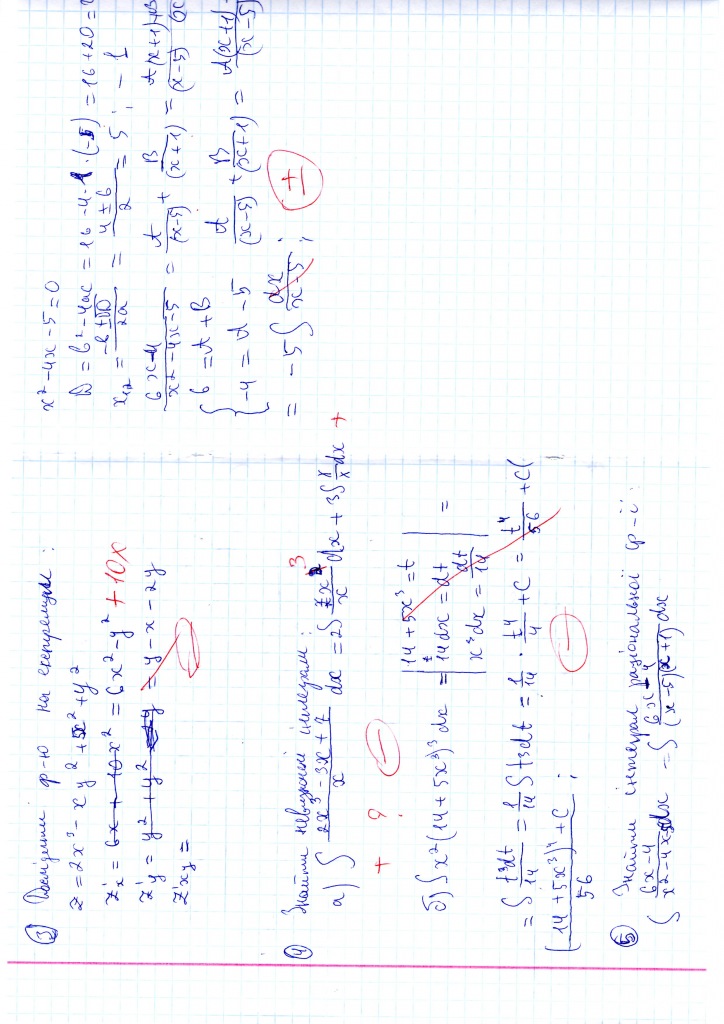 ③ Дослідити ф-ю на екстремум:
z = 2x³ - xy² + 5x² + y²
z'x = 6x + 10x² = 6x² - y² + 10x
z'y = y² + y² = y - x - 2y
z'xy =
④ Знайти невизначені інтеграли:
а) ∫ (2x³ - 3x + 7)/x dx = 2∫ x³/x dx + 3∫ x/x dx +
+ ?
б) ∫ x²(14 + 5x³)³ dx = | 14 + 5x³ = t
14 dx = dt
x³ dx = dt/14 | =
= ∫ t³dt/14 = 1/14 ∫ t³dt = 1/14 · t⁴/4 + C = t⁴/56 + C (
(14 + 5x³)⁴ + C / 56 ;
⑤ Знайти інтеграл раціональної ф-ї:
∫ (6x - 4)/(x² - 4x - 5) dx = ∫ (6x - 4)/((x - 5)(x + 1)) dx
x² - 4x - 5 = 0
D = b² - 4ac = 16 - 4 · 1 · (-5) = 16 + 20 =
x₁,₂ = (-b ± √D)/2a = (4 ± 6)/2 = 5 ; -1
(6x - 4)/(x² - 4x - 5) = A/(x - 5) + B/(x + 1) = A(x + 1) + B / (x - 5)
{ 6 = A + B
-4 = A - 5 A/(x - 5) + B/(x + 1) = A(x + 1) / (x - 5)
= -5 ∫ dx/(x - 5) ; ±